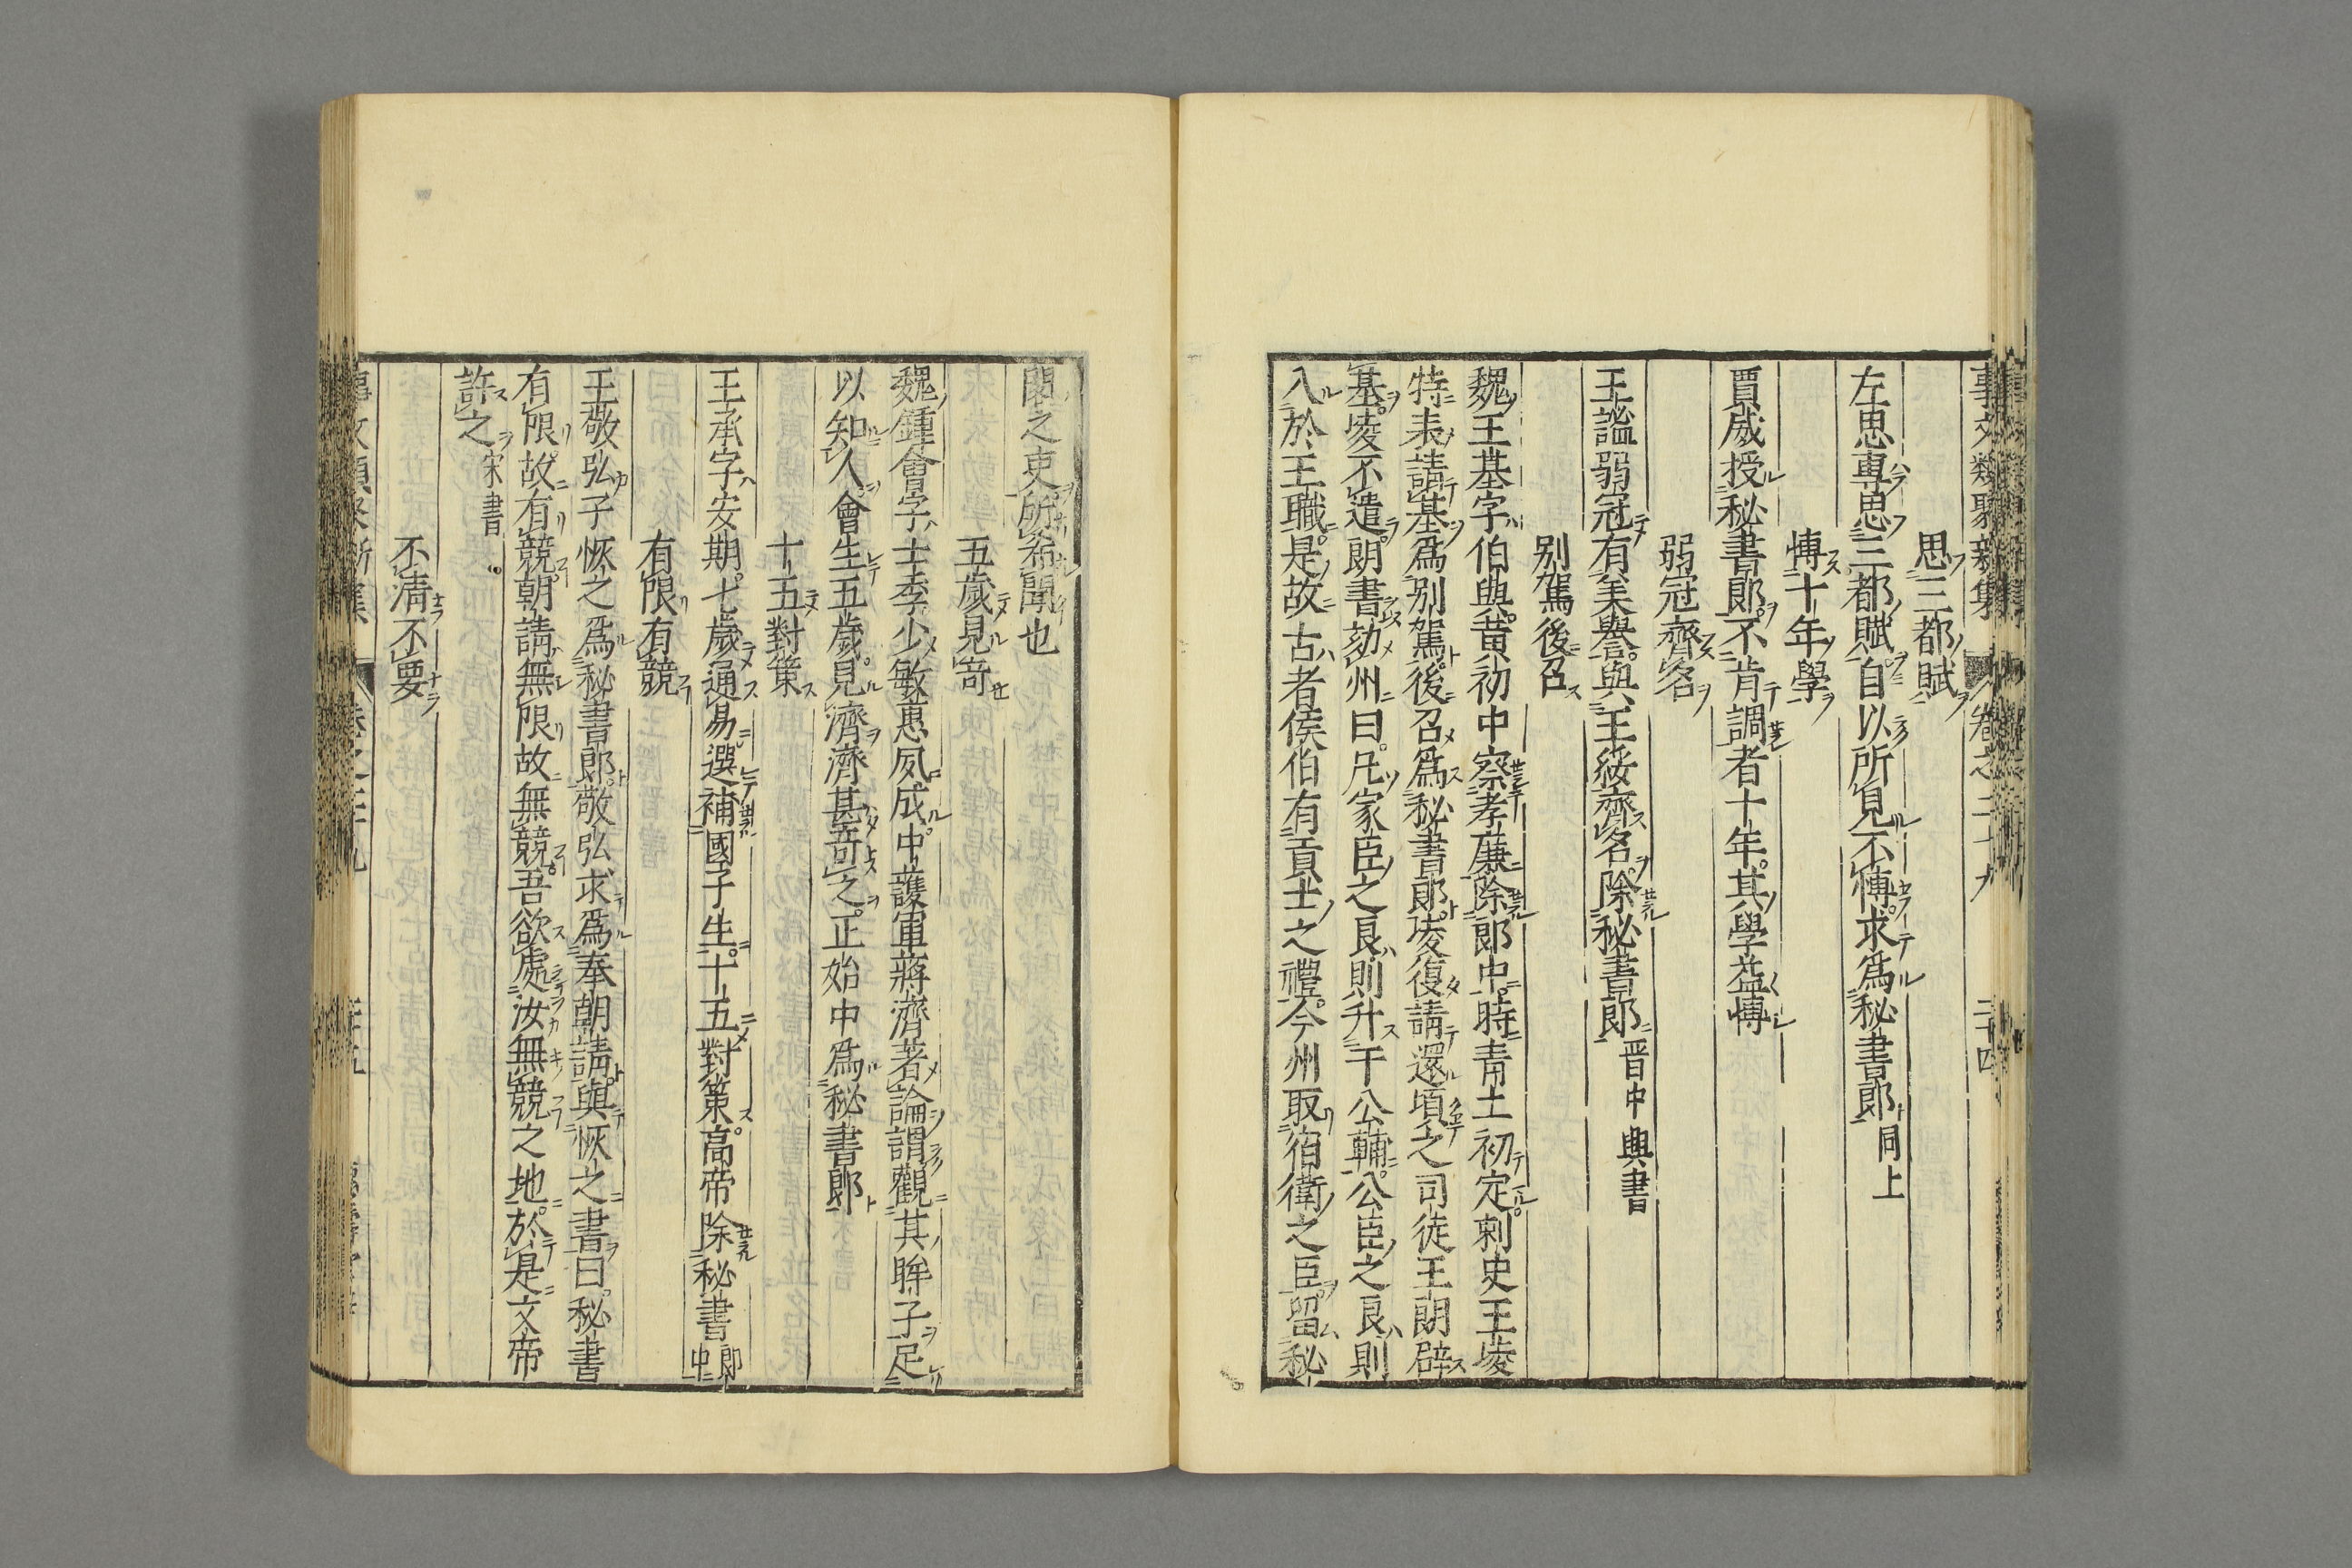 事文類聚新集 卷之二十九 二十四
思三都賦
左思專思三都賦自以所見不博求爲秘書郎同上
博十年學
賈咸授秘書郎不肯調者十年其學益博
弱冠齊名
王謐弱冠有美譽與王綏齊名除秘書郎晋中興書
别駕後召
魏王基字伯輿黄初中察孝廉除郎中時青土初定刺史王凌
特表請基爲别駕後召爲秘書郎凌復請還頃之司徒王朗辟
基凌不遣朗書劾州曰凡家臣之良則升于公輔公臣之良則
入於王職是故古者侯伯有貢士之禮今州取宿衛之臣留秘
閣之吏所希聞也
五歲見竒
魏鍾會字士季少敏蕙夙成中護軍蔣濟著論謂觀其眸子足
以知人會生五歲見濟濟甚竒之正始中爲秘書郎
十五對策
王承字安期七歲通易選補國子生十五對策高帝除秘書郎中
有限有競
王敬弘子恢之爲秘書郎敬弘求爲奉朝請與恢之書曰秘書
有限故有競朝請無限故無競吾欲處汝無競之地於是文帝
許之宋書
不清不要